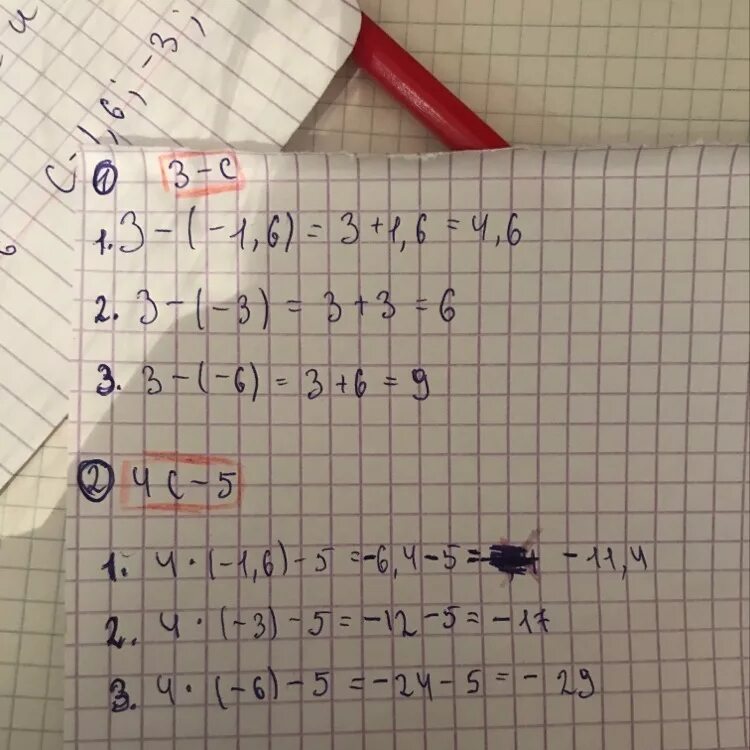 C -1,6; -3;
① 3-C
1. 3-(-1,6) = 3+1,6 = 4,6
2. 3-(-3) = 3+3 = 6
3. 3-(-6) = 3+6 = 9
② 4C-5
1. 4·(-1,6)-5 = -6,4-5 = -11,4
2. 4·(-3)-5 = -12-5 = -17
3. 4·(-6)-5 = -24-5 = -29